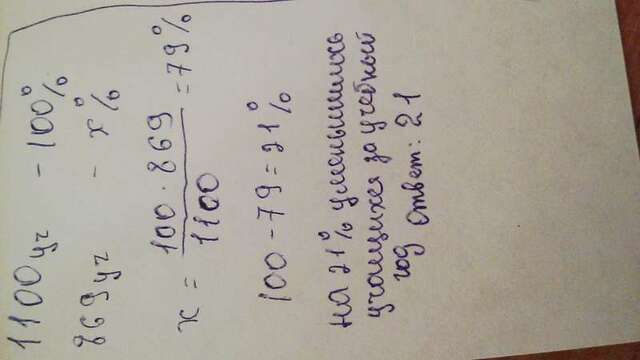 1100 уч - 100%
869 уч - x%
x = 100 · 869 / 1100 = 79%
100 - 79 = 21%
на 21% уменьшились
учащихся за учебный
год ответ: 21